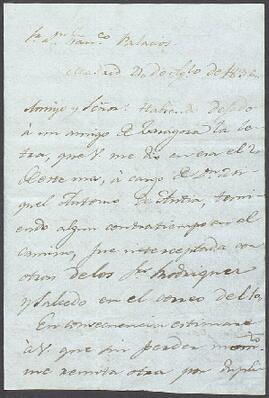 Sr. Dn. Franco. Palacios
Madrid 21 de de 1836
Amigo y Señor: Habiendo
á un amigo de Zaragoza la le-
tra, que V. me dio en esa el 20
de este mes, á cargo de Dn.
Antonio teni-
endo algun contratiempo en el
camino, fue interceptada con
otras de los Srs. Rodriguez
y Salcedo en el correo del 10.
En consecuencia estimaré
á V. que sin perder momto.
me remita otra por dupli-